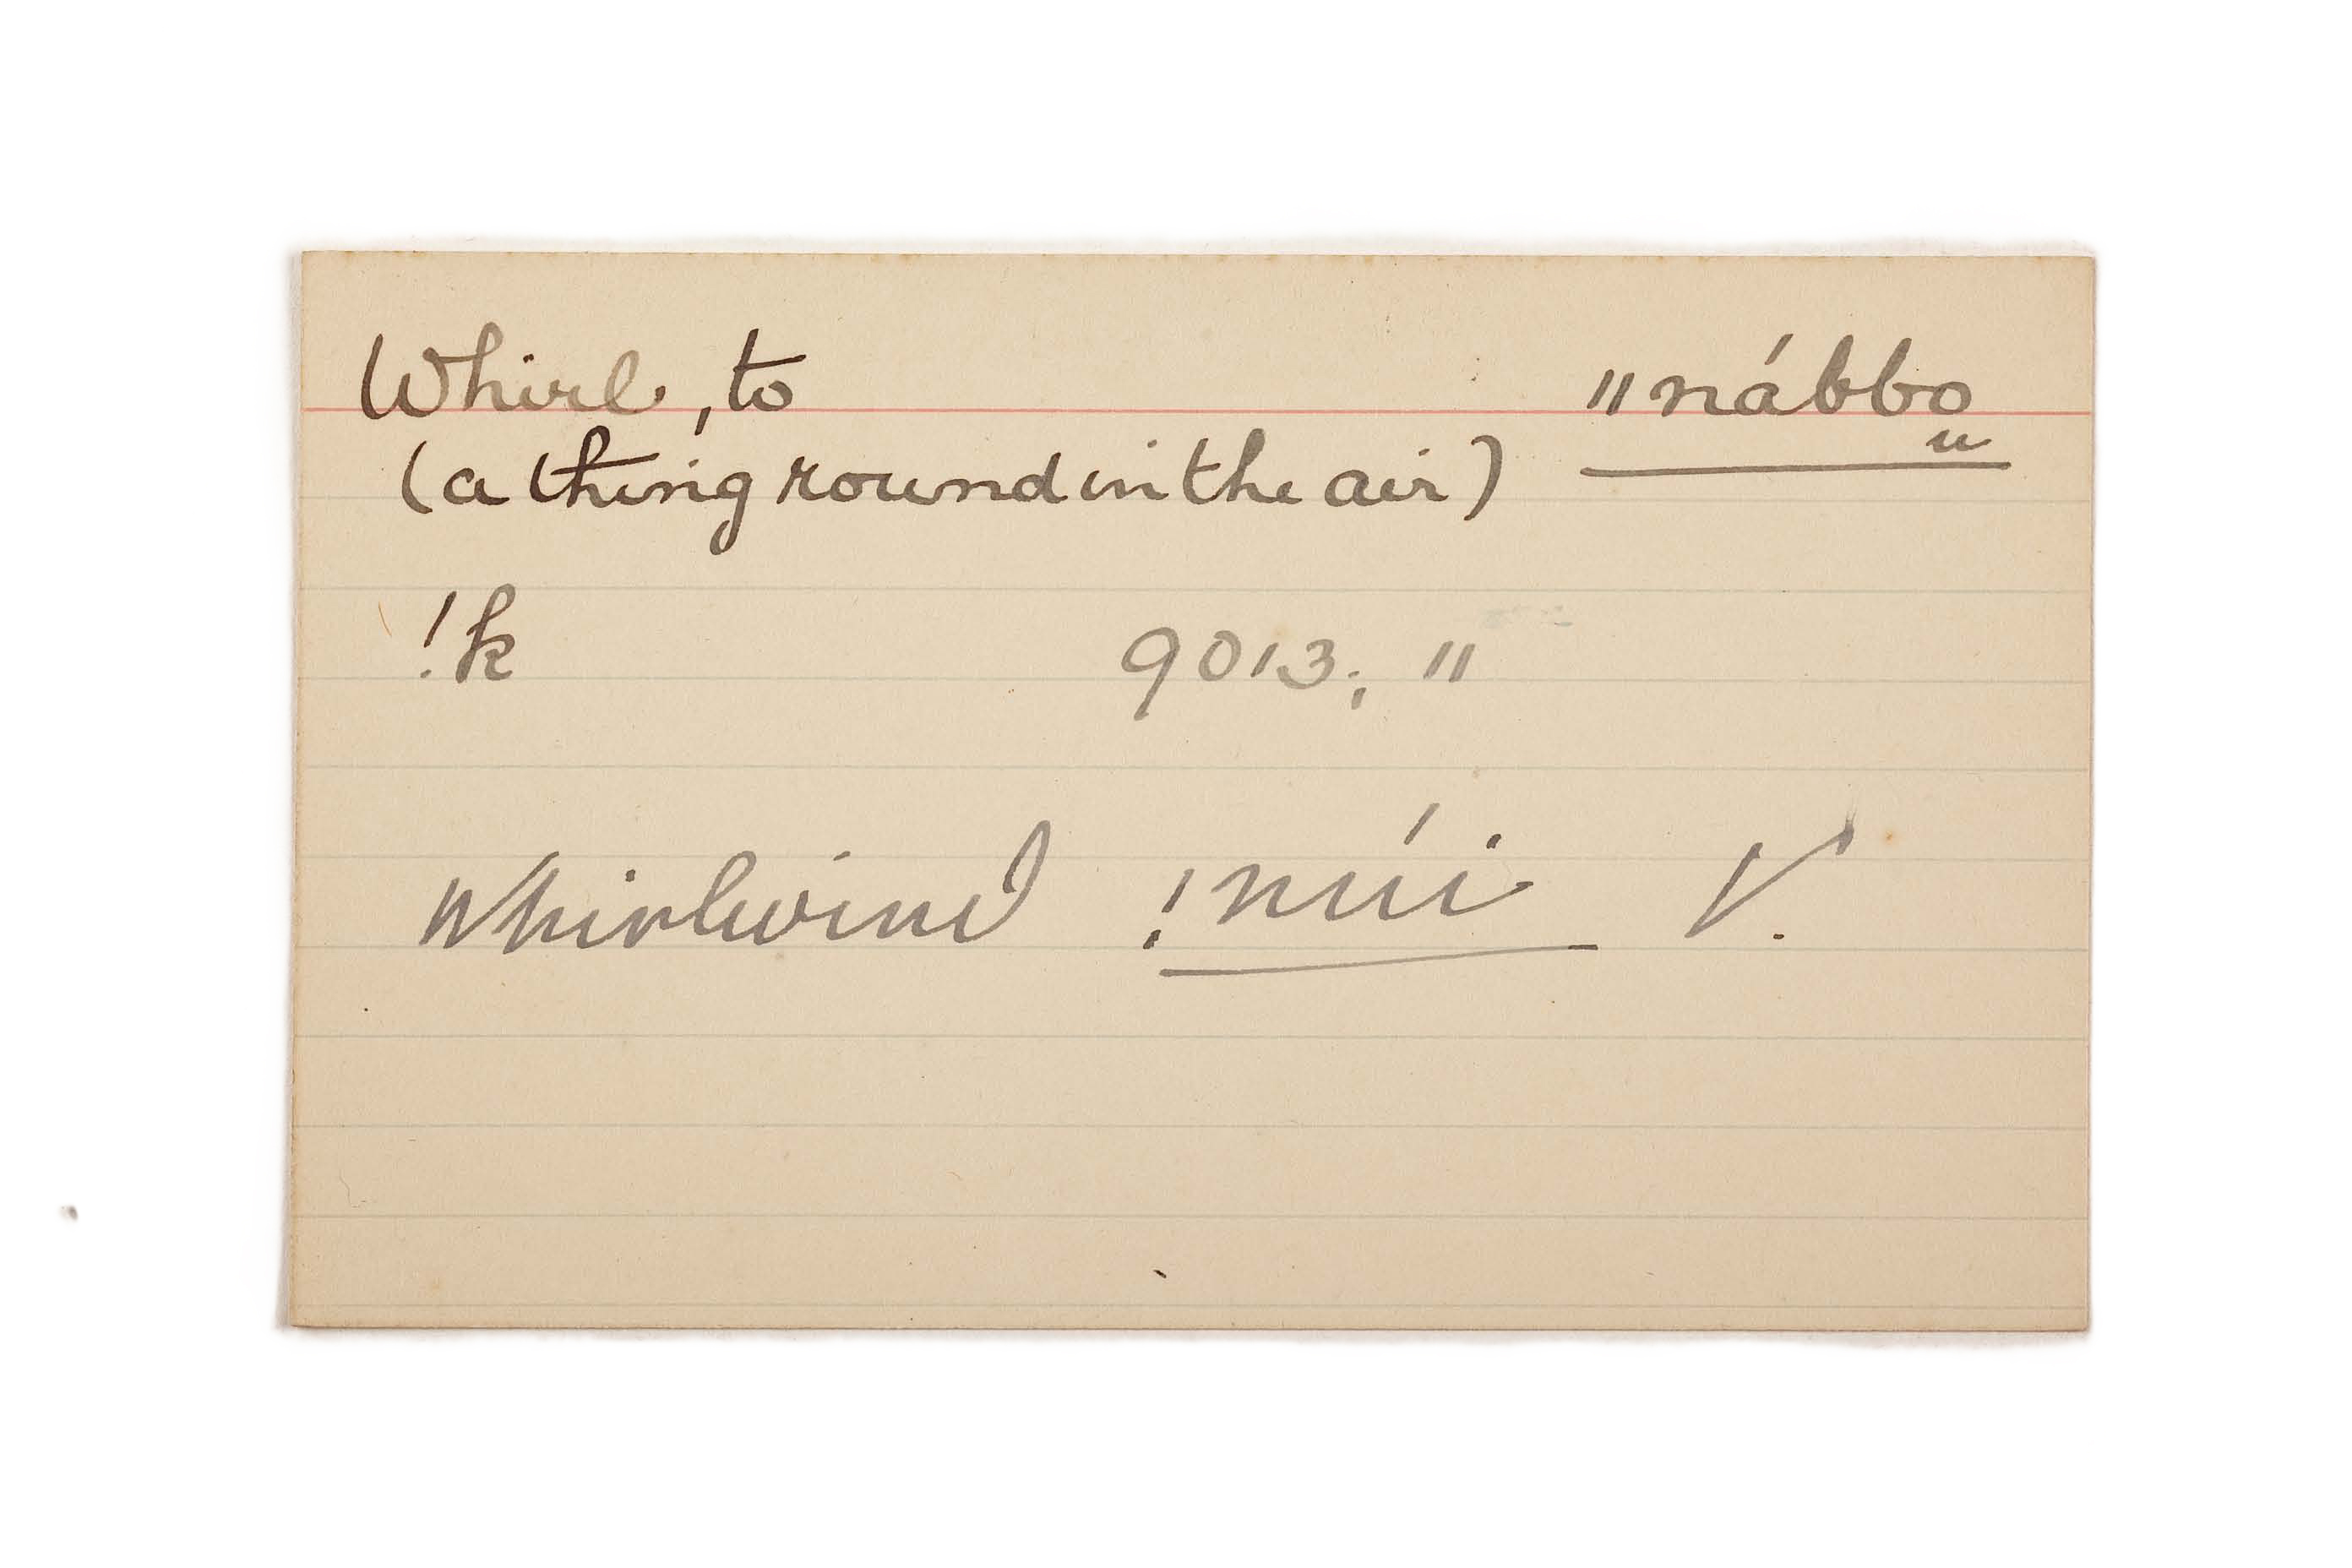 Whirl, to ǁnábbo
u
(a thing round in the air)
!k 9013; ǁ
Whirlwind !núi V.